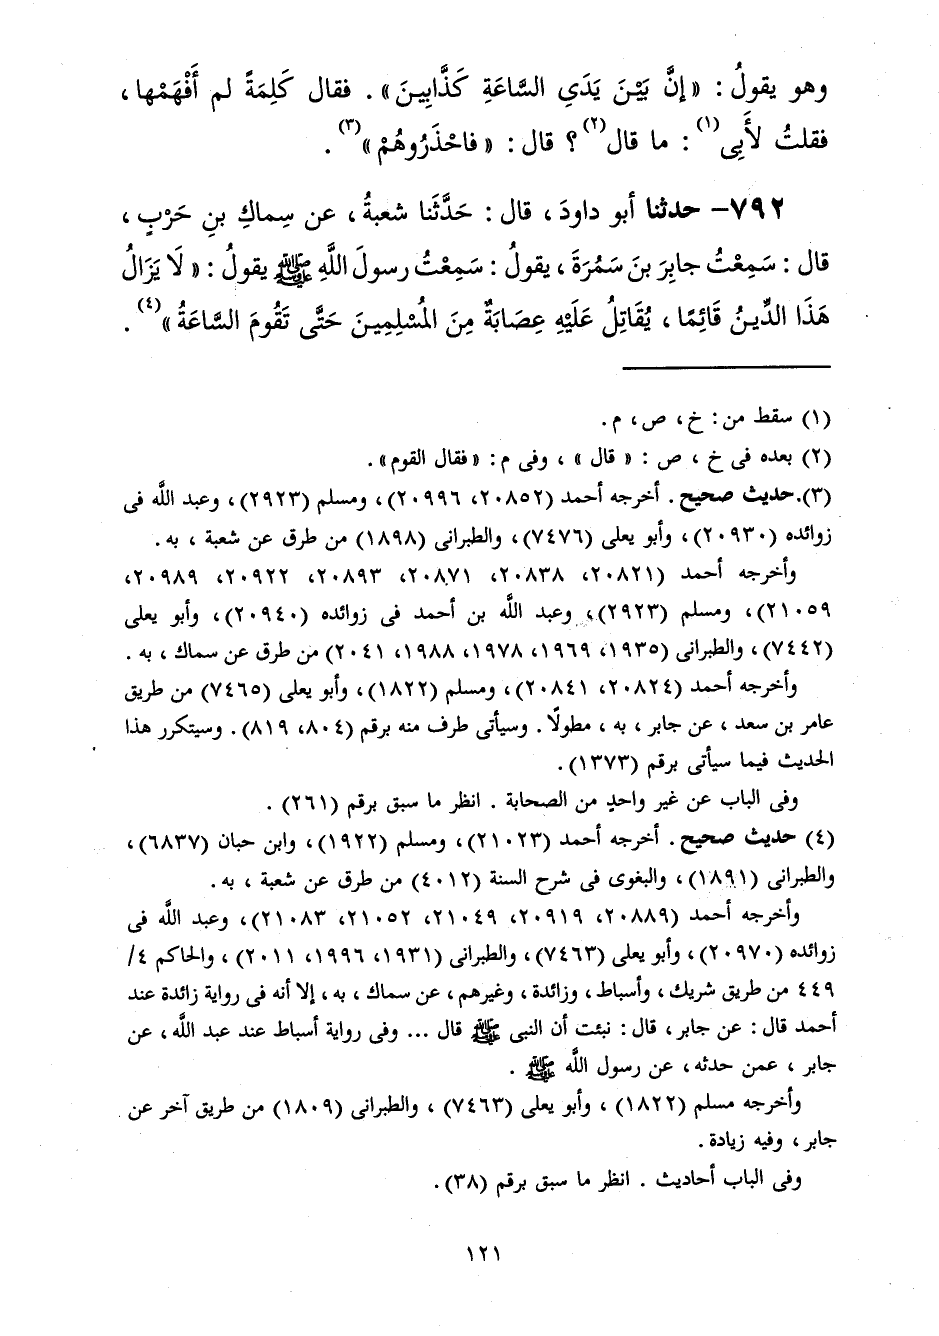 وهو يقولُ : « إنَّ بَيْنَ يَدَىِ السَّاعَةِ كَذَّابِينَ » . فقال كَلِمَةً لم أَفْهَمْها ،
فقلتُ لأَبِى(١) : ما قال(٢) ؟ قال : « فاحْذَرُوهُمْ »(٣) .
٧٩٢- حدثنا أبو داودَ ، قال : حَدَّثَنا شعبةُ ، عن سِماكِ بنِ حَرْبٍ ،
قال : سَمِعْتُ جابِرَ بنَ سَمُرَةَ ، يقولُ : سَمِعْتُ رسولَ اللَّهِ ﷺ يقولُ : « لَا يَزَالُ
هَذَا الدِّينُ قَائِمًا ، يُقَاتِلُ عَلَيْهِ عِصَابَةٌ مِنَ الْمُسْلِمِينَ حَتَّى تَقُومَ السَّاعَةُ »(٤) .
(١) سقط من : خ ، ص ، م .
(٢) بعده فى خ ، ص : « قال » ، وفى م : «فقال القوم» .
(٣) حديث صحيح . أخرجه أحمد (٢٠٨٥٢، ٢٠٩٩٦) ، ومسلم (٢٩٢٣) ، وعبد اللَّه فى
زوائده (٢٠٩٣٠) ، وأبو يعلى (٧٤٧٦) ، والطبرانى (١٨٩٨) من طرق عن شعبة ، به .
وأخرجه أحمد (٢٠٨٢١، ٢٠٨٣٨، ٢٠٨٧١، ٢٠٨٩٣، ٢٠٩٢٢، ٢٠٩٨٩،
٢١٠٥٩) ، ومسلم (٢٩٢٣) ، وعبد اللَّه بن أحمد فى زوائده (٢٠٩٤٠) ، وأبو يعلى
(٧٤٤٢) ، والطبرانى (١٩٣٥، ١٩٦٩، ١٩٧٨، ١٩٨٨، ٢٠٤١) من طرق عن سماك ، به .
وأخرجه أحمد (٢٠٨٢٤، ٢٠٨٤١) ، ومسلم (١٨٢٢) ، وأبو يعلى (٧٤٦٥) من طريق
عامر بن سعد ، عن جابر ، به ، مطولًا . وسيأتى طرف منه برقم (٨٠٤، ٨١٩) . وسيتكرر هذا
الحديث فيما سيأتى برقم (١٣٧٣) .
وفى الباب عن غير واحدٍ من الصحابة . انظر ما سبق برقم (٢٦١) .
(٤) حديث صحيح . أخرجه أحمد (٢١٠٢٣) ، ومسلم (١٩٢٢) ، وابن حبان (٦٨٣٧) ،
والطبرانى (١٨٩١) ، والبغوى فى شرح السنة (٤٠١٢) من طرق عن شعبة ، به .
وأخرجه أحمد (٢٠٨٨٩، ٢٠٩١٩، ٢١٠٤٩، ٢١٠٥٢، ٢١٠٨٣) ، وعبد اللَّه فى
زوائده (٢٠٩٧٠) ، وأبو يعلى (٧٤٦٣) ، والطبرانى (١٩٣١، ١٩٩٦، ٢٠١١) ، والحاكم ٤/
٤٤٩ من طريق شريك ، وأسباط ، وزائدة ، وغيرهم ، عن سماك ، به ، إلا أنه فى رواية زائدة عند
أحمد قال : عن جابر ، قال : نبئت أن النبى ﷺ قال ... وفى رواية أسباط عند عبد اللَّه ، عن
جابر ، عمن حدثه ، عن رسول اللَّه ﷺ .
وأخرجه مسلم (١٨٢٢) ، وأبو يعلى (٧٤٦٣) ، والطبرانى (١٨٠٩) من طريق آخر عن
جابر ، وفيه زيادة .
وفى الباب أحاديث . انظر ما سبق برقم (٣٨) .
١٢١